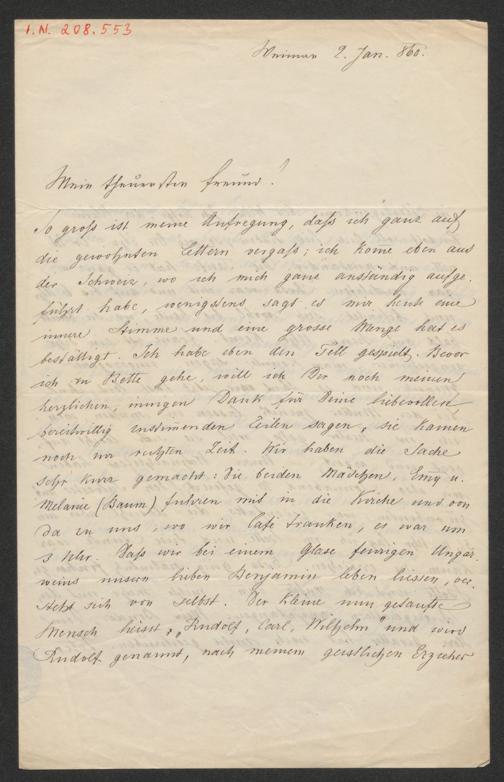 I.N. 208.553
Weimar 2. Jan. 860.
Mein theuerster Freund!
So groß ist meine Aufregung, daß ich ganz auf
die gewohnten Lettern vergaß; ich kome eben aus
der Schweiz, wo ich mich ganz anständig aufge-
führt habe, wenigstens sagt es mir heute eine
innere Stimme und eine grosse Menge hat es
bestättigt. Ich habe eben den Tell gespielt. Bevor
ich zu Bette gehe, will ich Dir noch meinen
herzlichen, innigen Dank für Deine liebevollen,
bereitwillig zustimenden Zeilen sagen, sie kamen
noch zur rechten Zeit. Wir haben die Sache
sehr kurz gemacht: die beiden Mädchen, Emy u.
Melanie (Baum) fuhren mit in die Kirche und von
da zu uns, wo wir Café tranken, es war um
3 Uhr. Daß wir bei einem Glase feurigen Ungar
weins unsern lieben Benjamin leben liessen, ver-
steht sich von selbst. Der kleine nun getaufte
Mensch heisst „Rudolf, Carl, Wilhelm" und wird
Rudolf genannt, nach meinem geistlichen Erzieher